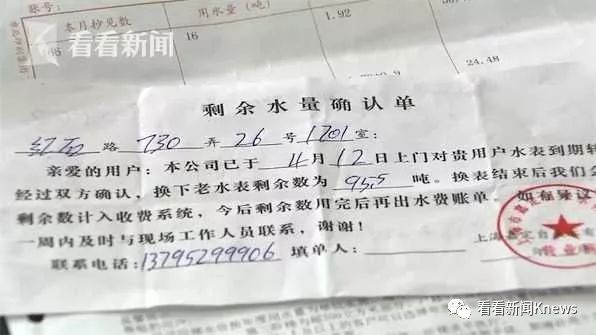 账号:
本月抄见数
用水量(吨)
1.92
168
16
看看新闻
24.48
剩余水量确认单
红石路730弄26号1701室:
亲爱的用户:本公司已于4月12日上门对贵用户水表到期轮
经过双方确认,换下老水表剩余数为95.5吨。换表结束后我们会
剩余数计入收费系统,今后剩余数用完后再出水费账单。如有异议
一周内及时与现场工作人员联系,谢谢!
联系电话:13795299906 填单人:
看看新闻Knews